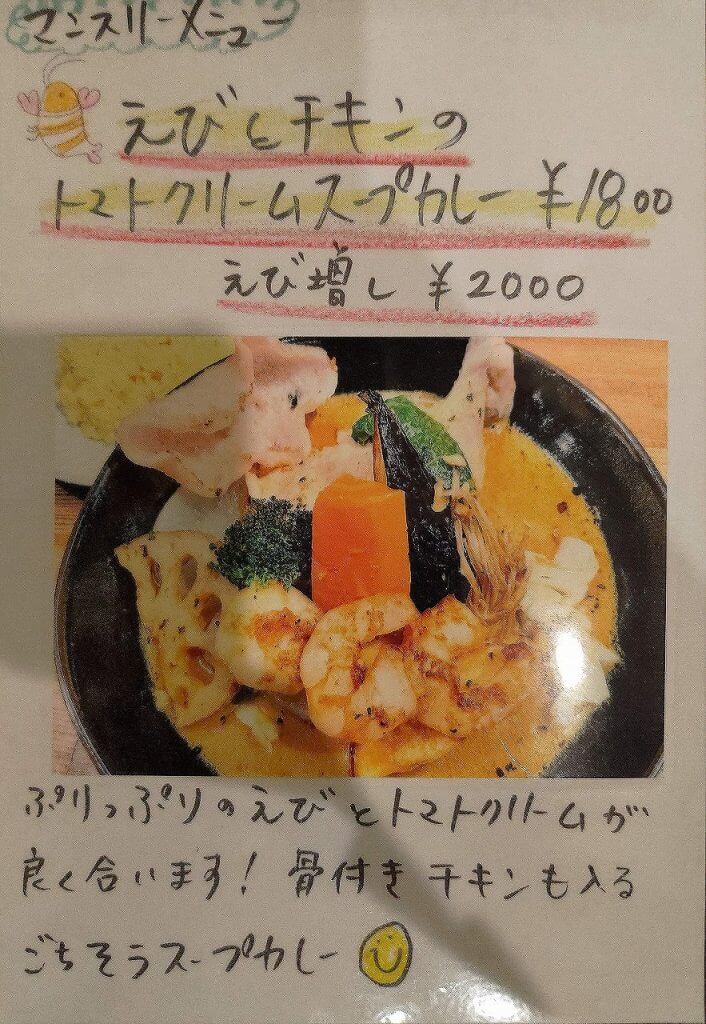 マンスリーメニュー
えびとチキンの
トマトクリームスープカレー ¥1800
えび増し ¥2000
ぷりっぷりのえびとトマトクリームが
良く合います! 骨付きチキンも入る
ごちそうスープカレー